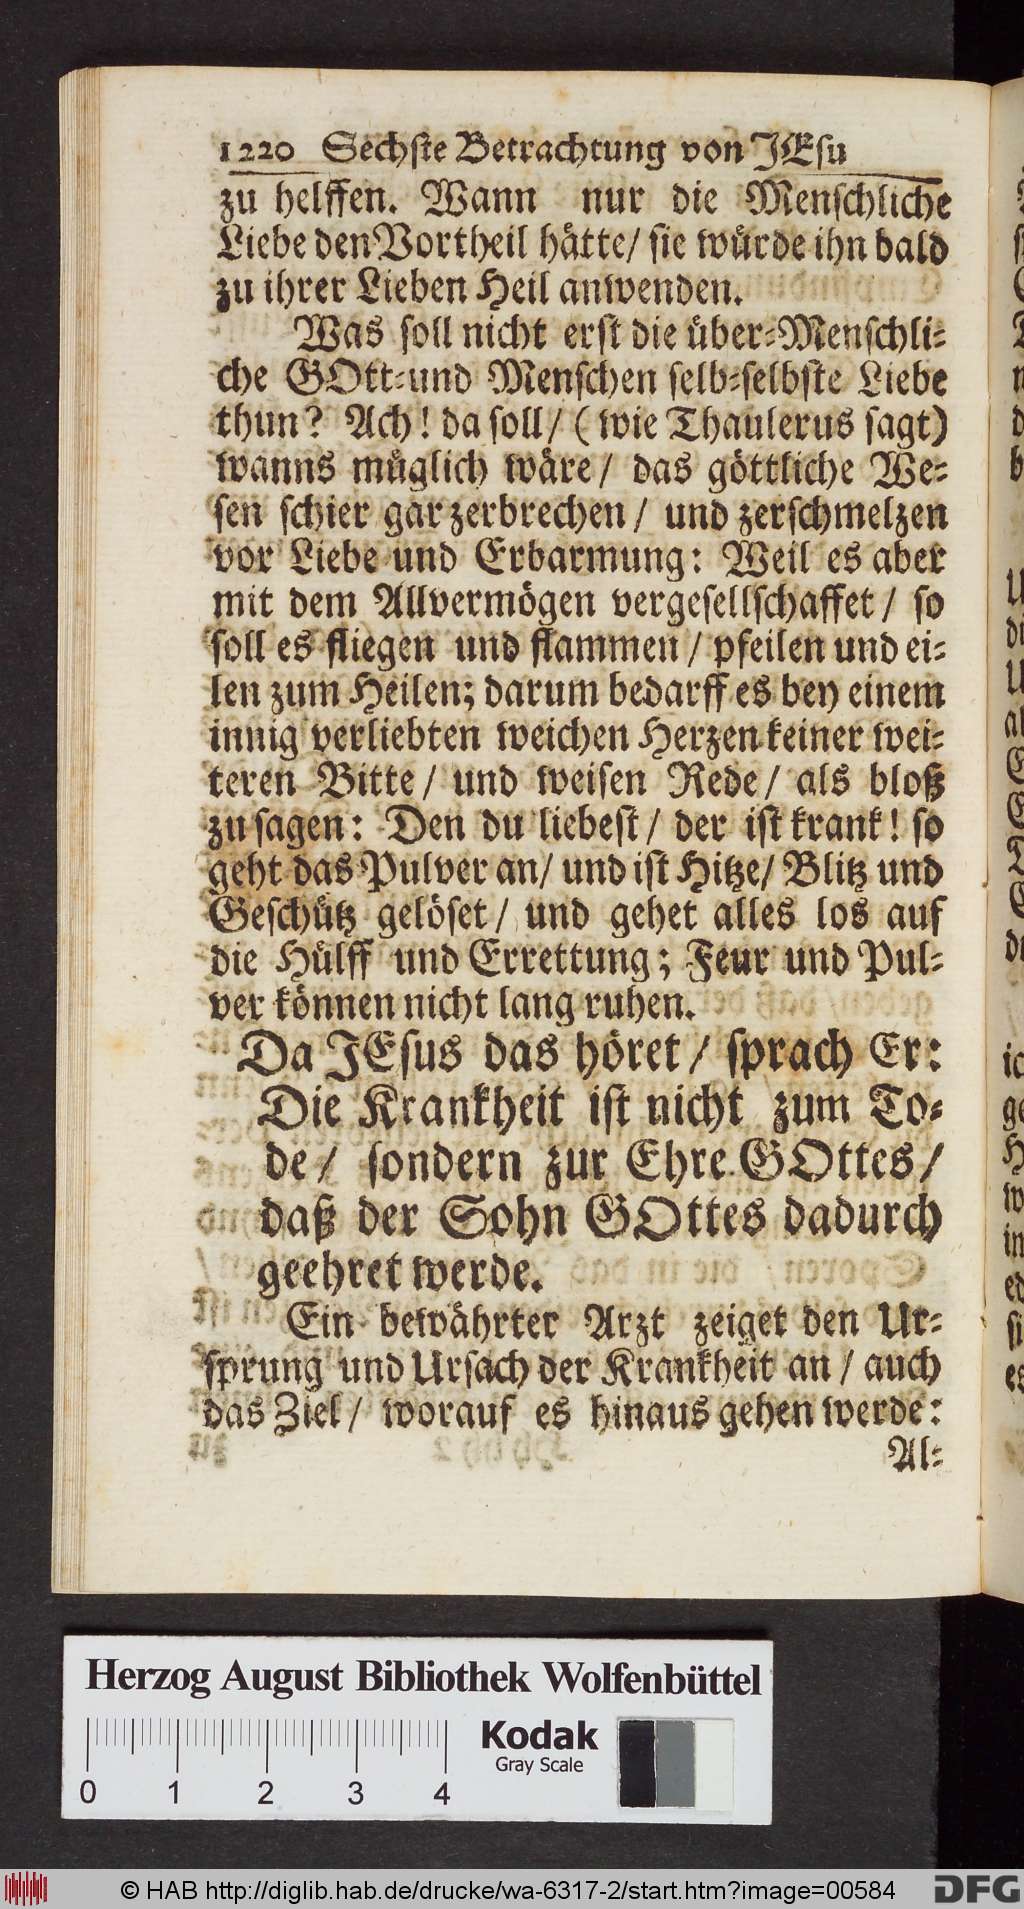 1220 Sechste Betrachtung von JEsu
zu helffen. Wann nur die Menschliche
Liebe den Vortheil hätte/ sie würde ihn bald
zu ihrer Lieben Heil anwenden.
Was soll nicht erst die über-Menschli-
che GOtt-und Menschen selb-selbste Liebe
thun? Ach! da soll/ (wie Thaulerus sagt)
wanns müglich wäre/ das göttliche We-
sen schier gar zerbrechen/ und zerschmelzen
vor Liebe und Erbarmung: Weil es aber
mit dem Allvermögen vergesellschaffet/ so
soll es fliegen und flammen/ pfeilen und ei-
len zum Heilen; darum bedarff es bey einem
innig verliebten weichen Herzen keiner wei-
teren Bitte/ und weisen Rede/ als bloß
zu sagen: Den du liebest/ der ist krank! so
geht das Pulver an/ und ist Hitze/ Blitz und
Geschütz gelöset/ und gehet alles los auf
die Hülff und Errettung; Feur und Pul-
ver können nicht lang ruhen.
Da JEsus das höret/ sprach Er:
Die Krankheit ist nicht zum To-
de/ sondern zur Ehre GOttes/
daß der Sohn GOttes dadurch
geehret werde.
Ein bewährter Arzt zeiget den Ur-
sprung und Ursach der Krankheit an/ auch
das Ziel/ worauf es hinaus gehen werde:
Al-
Herzog August Bibliothek Wolfenbüttel
Kodak
Gray Scale
0 1 2 3 4
© HAB http://diglib.hab.de/drucke/wa-6317-2/start.htm?image=00584
DFG